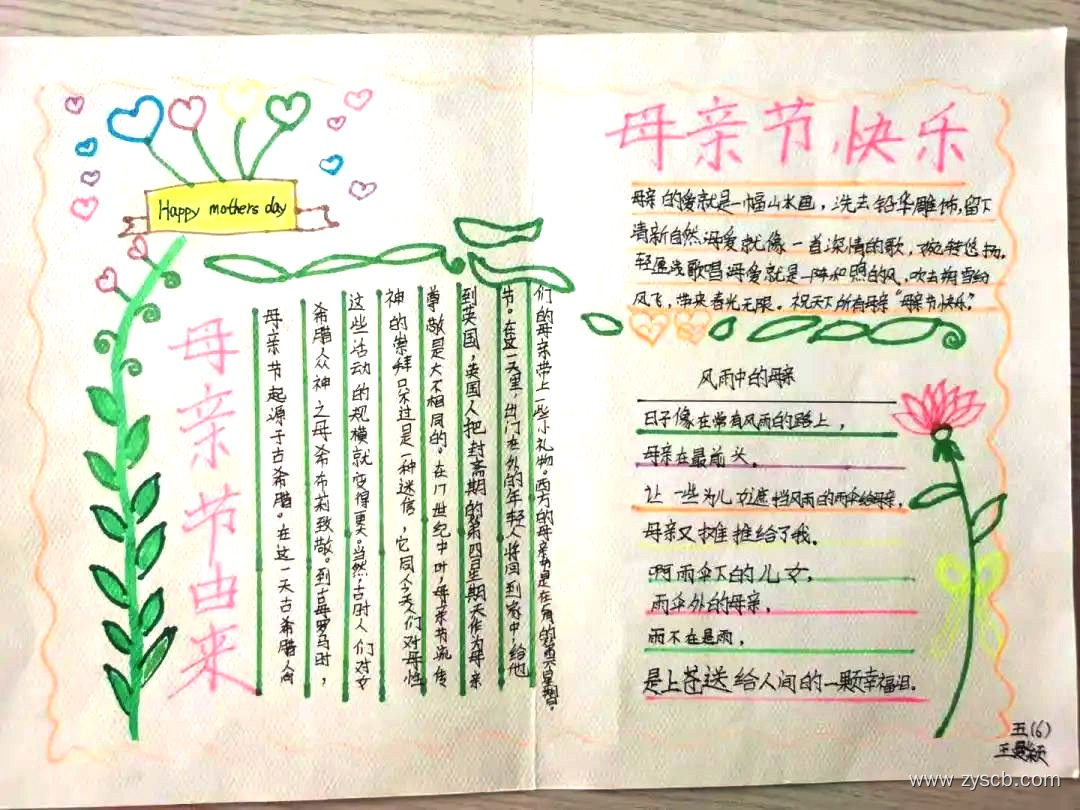 Happy mothers day
母亲节由来
母亲节起源于古希腊。在这一天古希腊人向
希腊众神之母希布莉致敬。到古罗马时，
这些活动的规横就变得更。当然古时人们对女
神的崇拜只不过是一种迷信，它同今天人们对母性
尊敬是大不相同的。在17世纪中叶，母亲节流传
到英国，英国人把封斋期的第四星期天作为母亲
节。在这一天里，出门在外的年轻人将回到家中，给他
们的母亲带上一些小礼物。西方的母亲是在
母亲节快乐
母亲的爱就是一幅山水画，洗去铅华雕饰，留下
清新自然，母爱就像一首深情的歌，婉转悠扬，
轻歌唱母爱就是一阵和煦的风，吹去
风飞，带来春光无限。祝天下所有母亲“母亲节快乐”
风雨中的母亲
日子像在常有风雨的路上，
母亲在最前头。
让一些为儿女遮挡风雨的雨伞给母亲，
母亲又摊推给了我。
啊雨伞下的儿女，
雨伞外的母亲，
雨不在是雨，
是上苍送给人间的一颗幸福泪。
五(6)
www.zyscb.com